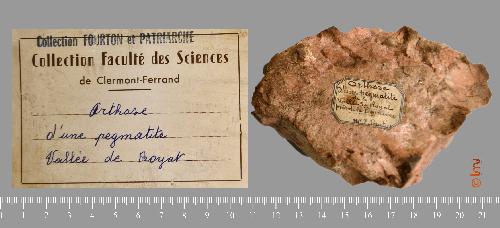 Collection FOURTON et PATRIARCHE
Collection Faculté des Sciences
de Clermont-Ferrand
Orthose
d'une pegmatite
Vallée de Royat
Orthose
D'une pegmatite
© bru
0 1 2 3 4 5 6 7 8 9 10 11 12 13 14 15 16 17 18 19 20 21